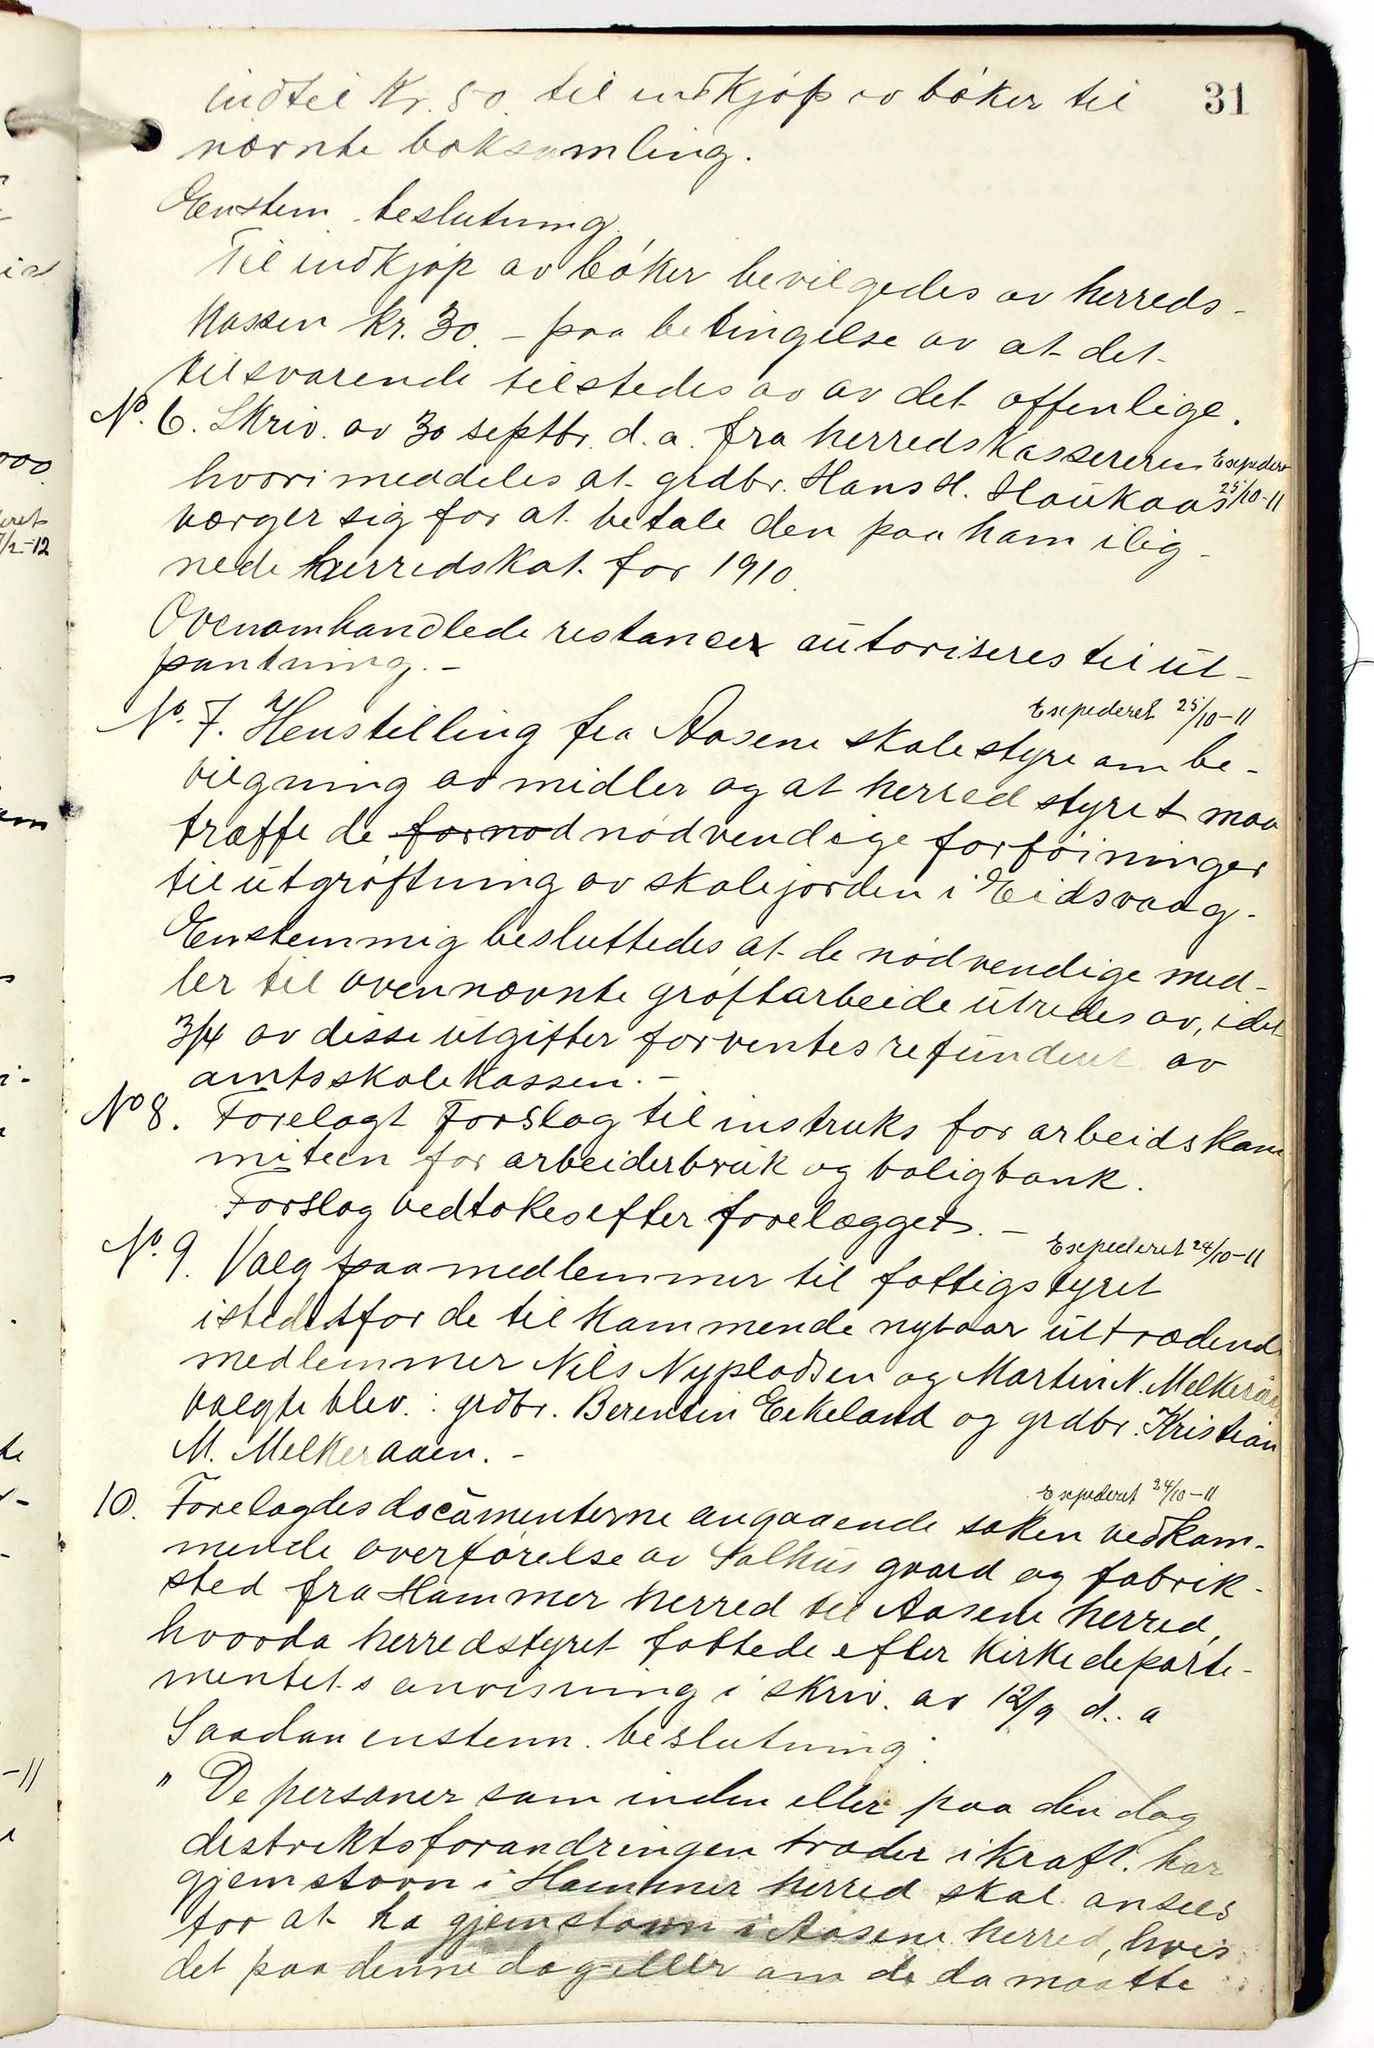 31
indtil Kr. 50 til indkjøp av bøker til
nævnte boksamling.
Enstem. beslutning.
Til indkjøp av bøker bevilgedes av herreds-
kassen kr. 30. - paa betingelse av at det
tilsvarende tilstedes av av det offenlige.
No. 6. Skriv. av 30 septbr. d. a. fra herredskassereren Expedert
hvori meddeles at grdbr. Hans H. Haukaas 25/10-11
værger sig for at betale den paa ham ilig-
nede herredskat for 1910.
Ovenomhandlede restancer autoriseres til ut-
pantning. -
Expederet 25/10-11
No. 7. Henstilling fra Aasene skolestyre om be-
vilgning av midler og at herredstyret maa
træffe de fornod nødvendige forføininger
til utgrøftning av skolejorden i Eidsvaag.
Enstemmig besluttedes at de nødvendige mid-
ler til ovennævnte grøftarbeide utredes av, idet
3/4 av disse utgifter forventes refunderet av
amtsskolekassen. -
No 8. Forelagt Forslag til instruks for arbeidskom
miteen for arbeiderbruk og boligbank.
Forslag vedtokes efter forelægget. -
Expederet 24/10-11
No. 9. Valg paa medlemmer til fattigstyret
istedetfor de til kommende nytaar uttrædende
medlemmer Nils Nypladsen og Martin N. Melkeraaen
valgte blev: grdbr. Berentin Eikeland og grdbr. Kristian
M. Melkeraaen. -
Expederet 24/10-11
10. Forelagdes documenterne angaaende saken vedkom-
mende overførelse av Salhus gaard og fabrik-
sted fra Hammer herred til Aasene herred,
hvorda herredstyret fattede efter Kirkedeparte-
mentets anvisning i skriv. av 12/9 d. a
Saadan enstem. beslutning:
" De personer som inden eller paa den dag
distriktsforandringen træder i kraft. har
hjemstavn i Hammer herred skal ansees
for at ha hjemstavn i Aasene herred, hvis
det paa denne dag eller om de da maatte